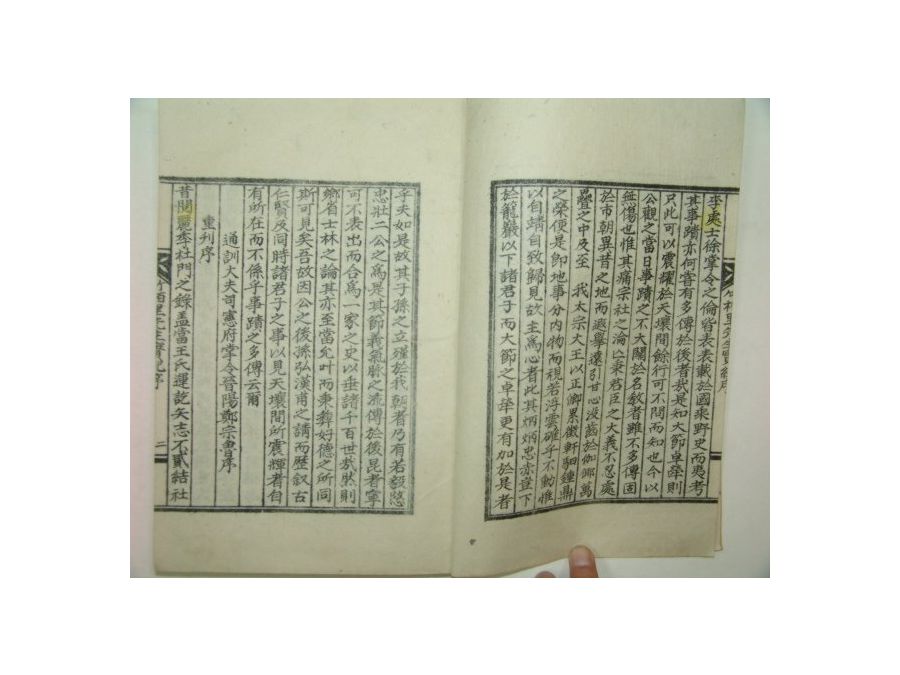 李處士徐掌令之倫皆表表載於國乘野史而夷考
其事蹟亦何嘗有多傳於後者哉是知大節卓犖則
只此可以震耀於天壤間餘行可不問而知也今以
公觀之當日事蹟之不大關於名敎者雖不多傳固
無傷也惟其痛宗社之淪亡秉君臣之大義不忍處
於市朝異昔之地而遯擧遠引甘心沒齒於伽倻萬
疊之中及至 我太宗大王以正卿累徵軒駟鍾鼎
之榮便是卽地事分內物而視若浮雲確乎不動惟
以自靖自致歸見故主爲心者此其炳炳忠赤豈下
於籠巖以下諸君子而大節之卓犖更有加於是者
乎夫如是故其子孫之立殣於我朝者乃有若毅愍
忠壯二公之爲是其節義氣脉之流傳於後昆者寧
可不表出而合爲一家之史以垂諸千百世哉然則
鄕省士林之論其亦至當允叶而秉彛好德之所同
斯可見矣吾故因公之後孫弘漢甫之請而歷叙古
仁賢及同時諸君子之事以見天壤間所震輝者自
有所在而不係乎事蹟之多傳云爾
通訓大夫司憲府掌令晉陽鄭宗魯序
重刋序
昔閱麗季杜門之錄盖當王氏運訖矢志不貳結社
二